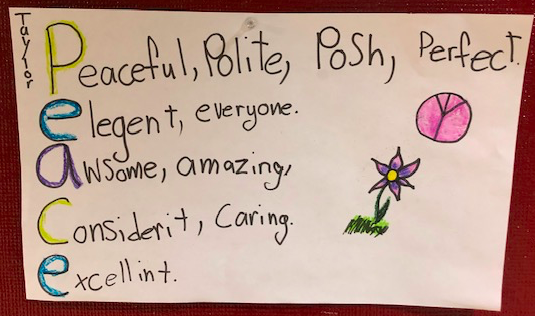 Taylor
Peaceful, Polite, Posh, Perfect.
elegent, everyone.
awsome, amazing,
Considerit, Caring.
excellint.